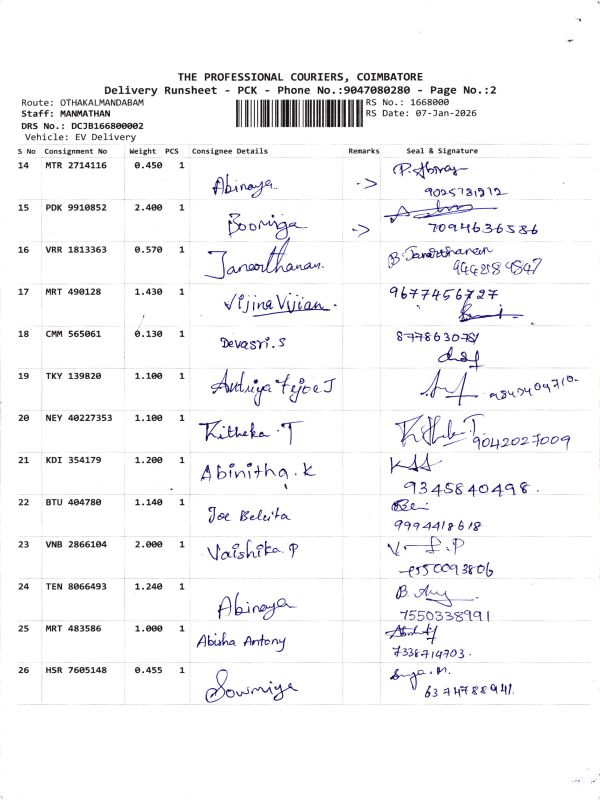 THE PROFESSIONAL COURIERS, COIMBATORE
Delivery Runsheet - PCK - Phone No.:9047080280 - Page No.:2
Route: OTHAKALMANDABAM RS No.: 1668000
Staff: MANMATHAN RS Date: 07-Jan-2026
DRS No.: DCJB166800002
Vehicle: EV Delivery
S No Consignment No Weight PCS Consignee Details Remarks Seal & Signature
14 MTR 2714116 0.450 1 Abinaya ->
15 PDK 9910852 2.400 1 Boomiga ->
7094636586
16 VRR 1813363 0.570 1 Janarthanan. B. Janarthanan
17 MRT 490128 1.430 1 Vijina Vijian. 9677456727
18 CMM 565061 0.130 1 Devasri.S
19 TKY 139820 1.100 1
20 NEY 40227353 1.100 1 Kitheka.T
9042027009
21 KDI 354179 1.200 1 Abinitha.K
9345840498.
22 BTU 404780 1.140 1 Joe Beleita
9994418618
23 VNB 2866104 2.000 1 Vaishika.P
24 TEN 8066493 1.240 1 Abinaya
7550338991
25 MRT 483586 1.000 1 Abisha Antony
7338714703.
26 HSR 7605148 0.455 1 Sowmiya
6374788941.